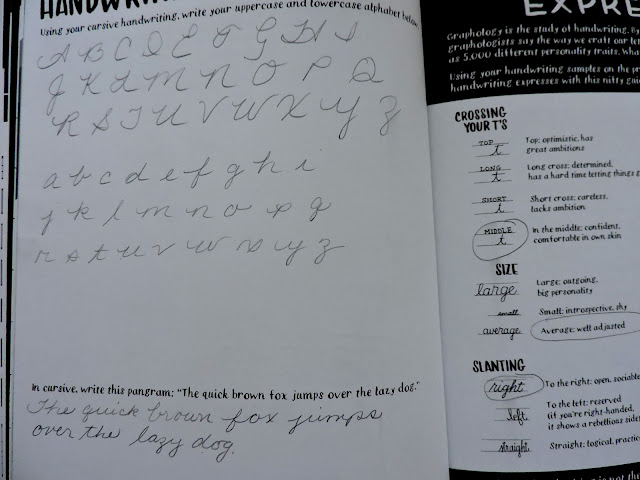 Using your cursive handwriting, write your uppercase and lowercase alphabet below.
A B C D E F G H I
J K L M N O P Q
R S T U V W X Y Z
a b c d e f g h i
j k l m n o p q
r s t u v w x y z
In cursive, write this pangram: "The quick brown fox jumps over the lazy dog."
The quick brown fox jumps
over the lazy dog.
Graphology is the study of handwriting. By
graphologists say the way we craft our
as 5,000 different personality traits.
Using your handwriting samples on the
handwriting expresses with this nifty
CROSSING
YOUR T'S
TOP
t
Top: optimistic, has
great ambitions
LONG
t
Long cross: determined,
has a hard time letting things
SHORT
t
Short cross: careless,
lacks ambition
MIDDLE
t
In the middle: confident,
comfortable in own skin
SIZE
large
Large: outgoing,
big personality
small
Small: introspective, shy
average
Average: well adjusted
SLANTING
right
To the right: open, sociable
left
To the left: reserved
(if you're right-handed,
it shows a rebellious side)
straight
Straight: logical,